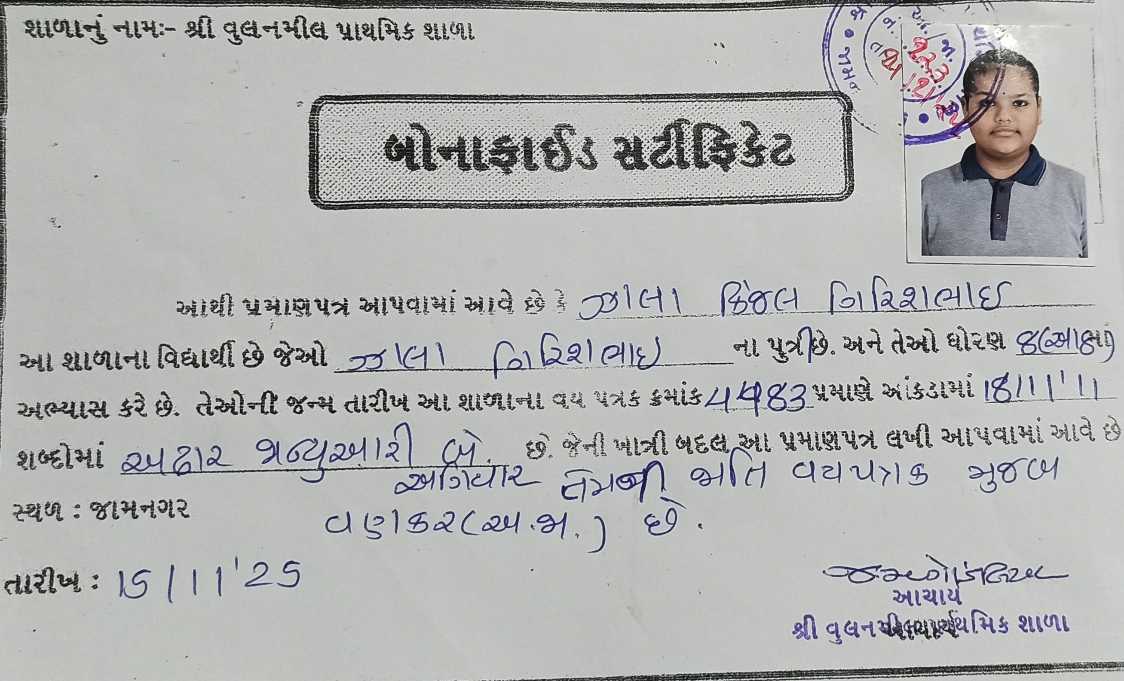 શાળાનું નામઃ- શ્રી વુલનમીલ પ્રાથમિક શાળા
બોનાફાઈડ સર્ટીફિકેટ
આથી પ્રમાણપત્ર આપવામાં આવે છે કે ઝાલા કિંજલ ગિરિશભાઈ
આ શાળાના વિદ્યાર્થી છે જેઓ ઝાલા ગિરિશભાઈ ના પુત્રી છે. અને તેઓ ધોરણ 8(આઠમાં)
અભ્યાસ કરે છે. તેઓની જન્મ તારીખ આ શાળાના વય પત્રક ક્રમાંક પ્રમાણે આંકડામાં 18/1/'11
શબ્દોમાં અઢાર જાન્યુઆરી બે. છે. જેની ખાત્રી બદલ આ પ્રમાણપત્ર લખી આપવામાં આવે છે
અગિયાર તેમની જાતિ વયપત્રક મુજબ
સ્થળ : જામનગર
વણકર(અ.જા.) છે.
તારીખ : 15/11'25
આચાર્ય
શ્રી વુલનમીલ પ્રાથમિક શાળા